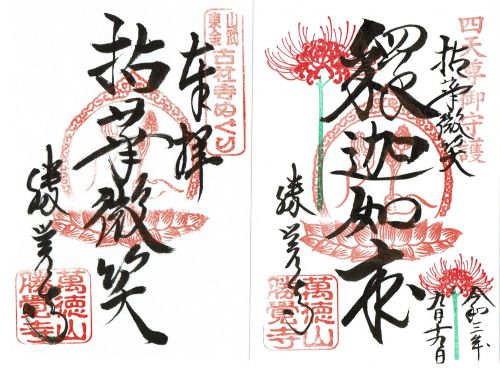 山武
東金
古社寺めぐり
奉拝
拈華微笑
勝覚寺
萬徳山
勝覺寺
四天尊御守護
拈華微笑
釈迦如来
勝覚寺
萬徳山
勝覺寺
令和三年
九月十九日